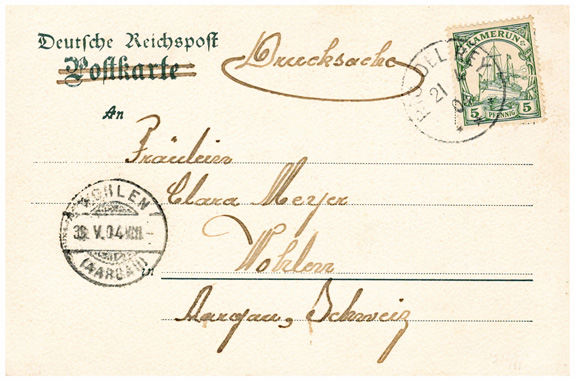 Deutsche Reichspost
Postkarte
Drucksache
KAMERUN
5 PFENNIG 5
21
An
Fräulein
Clara Meyer
WOHLEN
V. 04
(AARGAU)
in
Wohlen
Aargau, Schweiz